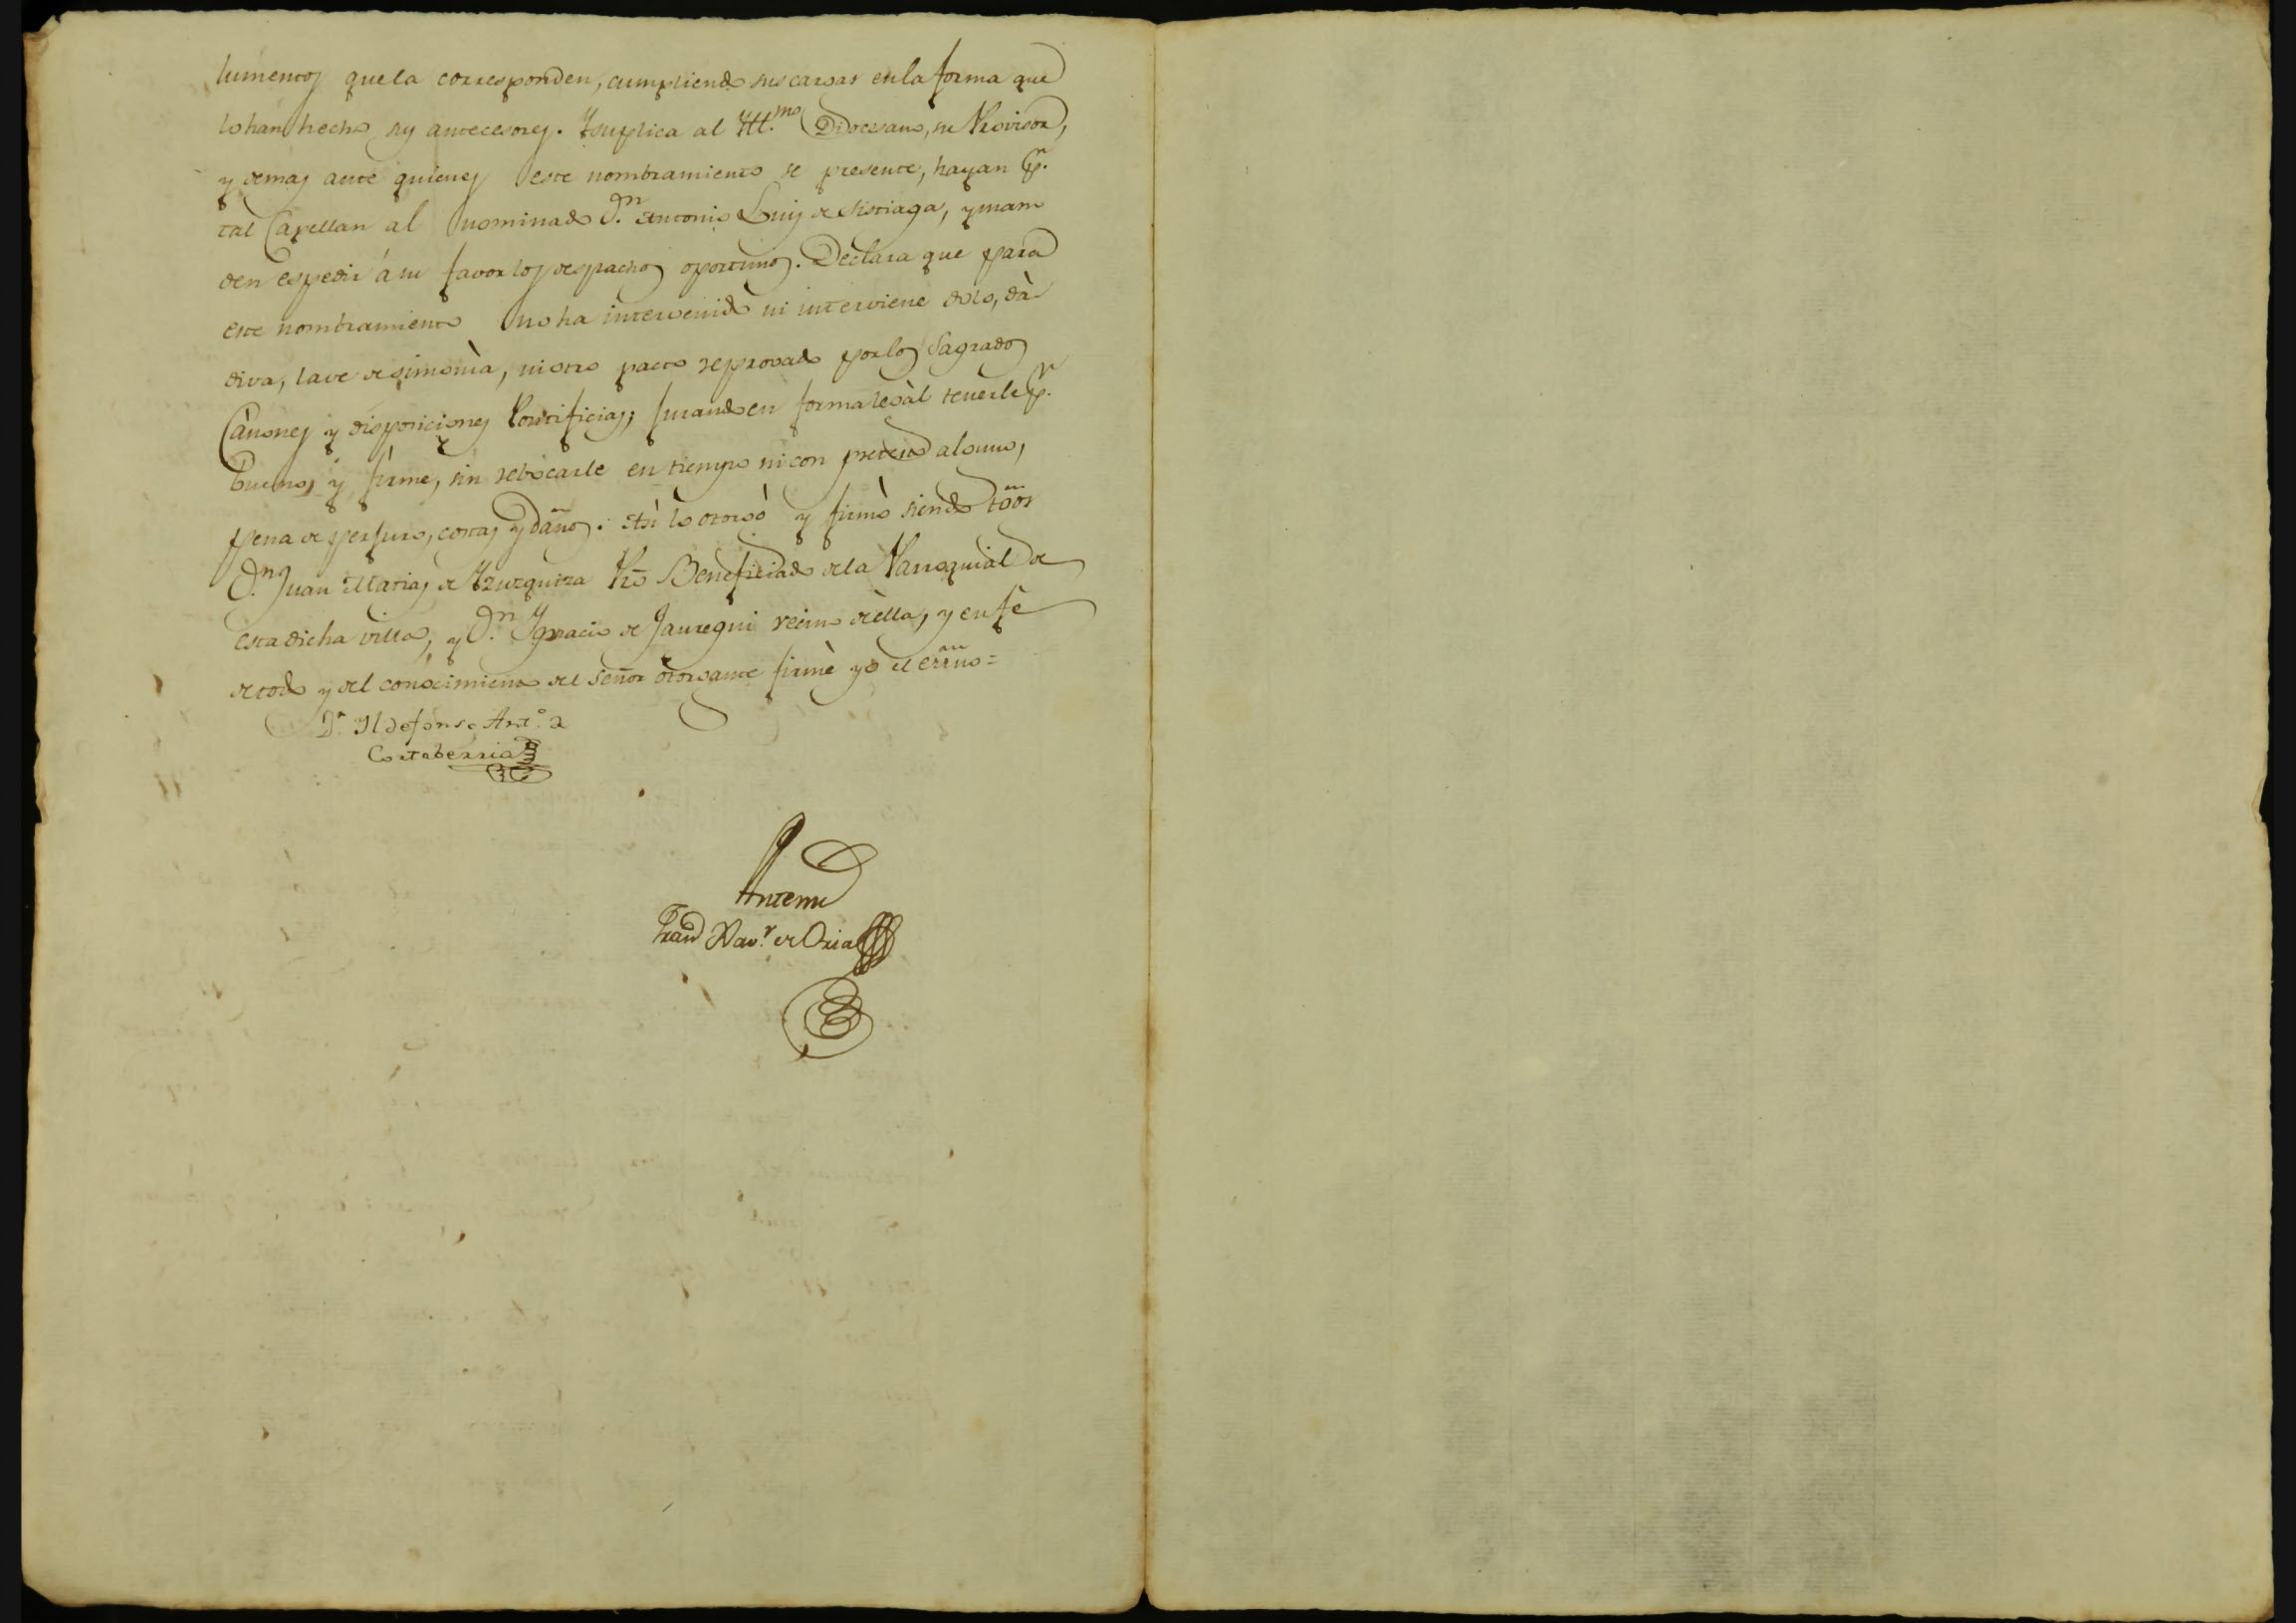 lumentos que la corresponden, cumpliendo sus cargas en la forma que
lo hán hecho sus antecesores. Y suplica al Yll.mo Diocesano, su Provisor,
y demas ante quienes este nombramiento se presente, hayan p.r
tal Capellan al nominado D.n Antonio Luis de Sistiaga, y man
den espedir á su favor los despachos oportunos. Declara que para
este nombramiento no ha intervenido ni interviene dolo, dà
diva, lave de simonìa, ni otro pacto reprovado por los Sagrados
Cànones y disposiciones Pontificias; jurando en forma legàl tenerle p.r
bueno, y firme, sin rebocarle en tiempo ni con pretexto alguno,
pena de perjuro, costas y daños. Asi lo otorgò y firmò siendo tg̃os
D.n Juan Matias de Yzuzquiza Pr̃o Beneficiado de la Parroquial de
esta dicha villa, y D.n Ygnacio de Jauregui vecino dèlla, y en fè
de todo y del conocimiento del señor otorgante firmè yo el ess̃no =
D.n Yldefonso Ant.o de
Cortaberria
Ante mi
Fran.co Xav.r de Oria